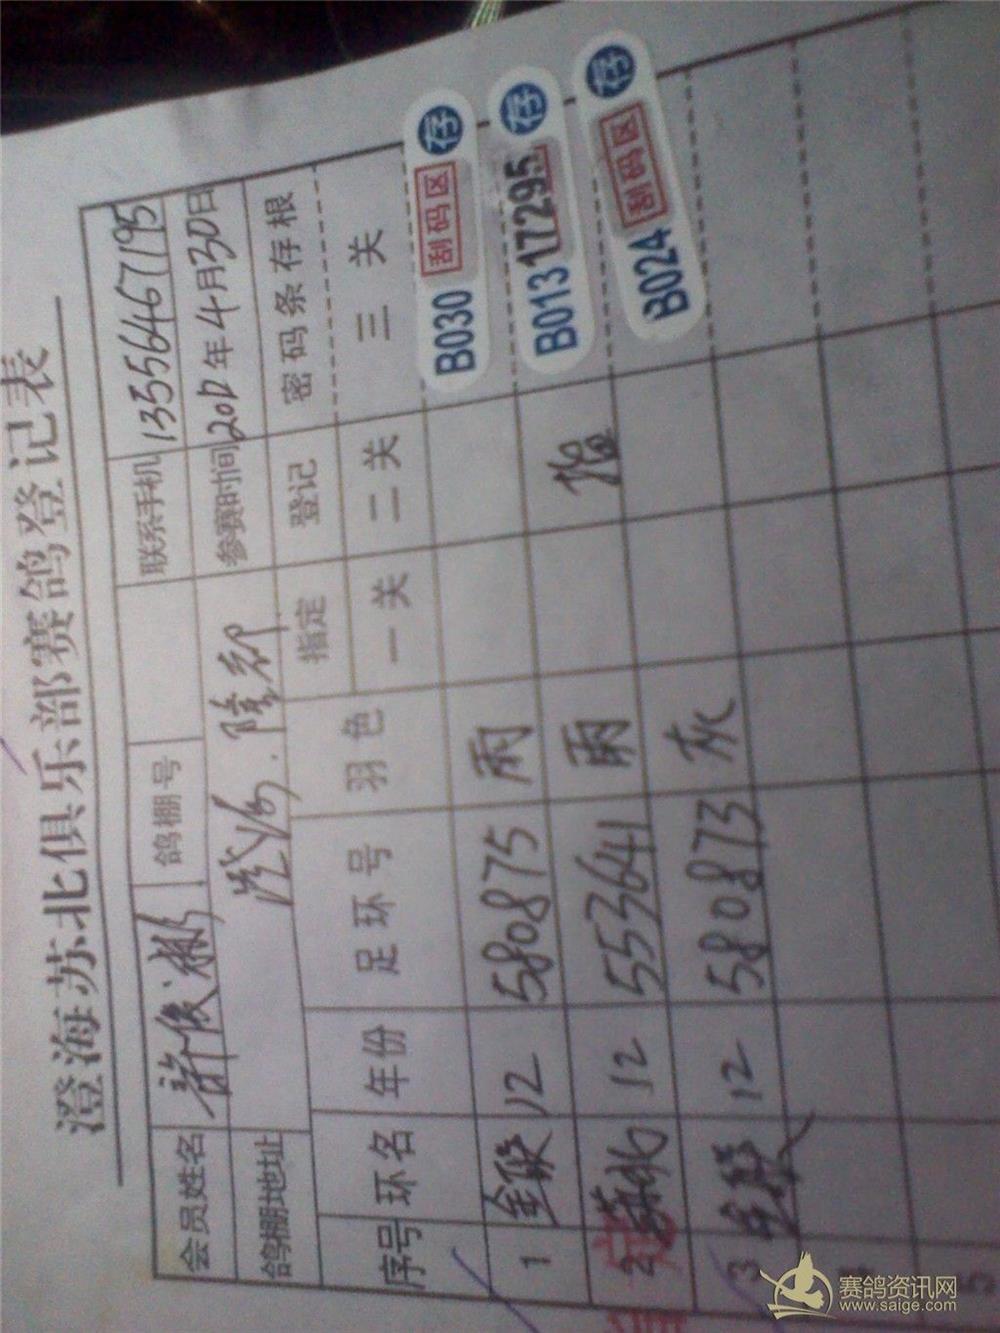 澄海苏北俱乐部赛鸽登记表
会员姓名 许俊 鸽棚号 联系手机 13556467195
鸽棚地址 澄海.隆都 参赛时间 2012年4月30日
序号 环名 年份 足环号 羽色 指定 登记 密码条存根
一关 二关 三关
1 全联 12 580875 雨 B030 刮码区 存
2 苏北 12 553641 雨 指 B013 17295 存
3 12 580873 灰 B024 刮码区 存
4
5
赛鸽资讯网
www.saige.com